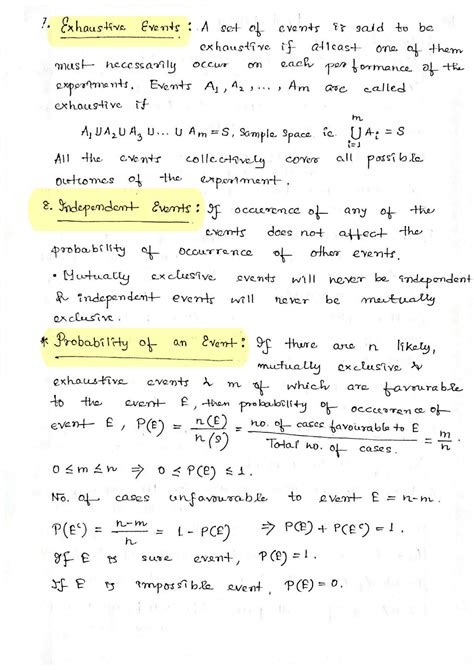 7. Exhaustive Events : A set of events is said to be
exhaustive if atleast one of them
must necessarily occur on each performance of the
experiments. Events A₁, A₂, ..., Am are called
exhaustive if
A₁ U A₂ U A₃ U ... U Am = S, Sample Space ie ⋃ᵢ₌₁ᵐ Aᵢ = S
All the events collectively cover all possible
outcomes of the experiment.
8. Independent Events : If occurence of any of the
events does not affect the
probability of occurrence of other events.
• Mutually exclusive events will never be independent
& independent events will never be mutually
exclusive.
* Probability of an Event : If there are n likely,
mutually exclusive &
exhaustive events & m of which are favourable
to the event E, then probability of occurrence of
event E, P(E) = n(E)/n(S) = no. of cases favourable to E / Total no. of cases. = m/n
0 ≤ m ≤ n ⇒ 0 ≤ P(E) ≤ 1.
No. of cases unfavourable to event E = n-m.
P(Eᶜ) = (n-m)/n = 1 - P(E) ⇒ P(E) + P(Eᶜ) = 1.
If E is sure event, P(E) = 1.
If E is impossible event, P(E) = 0.